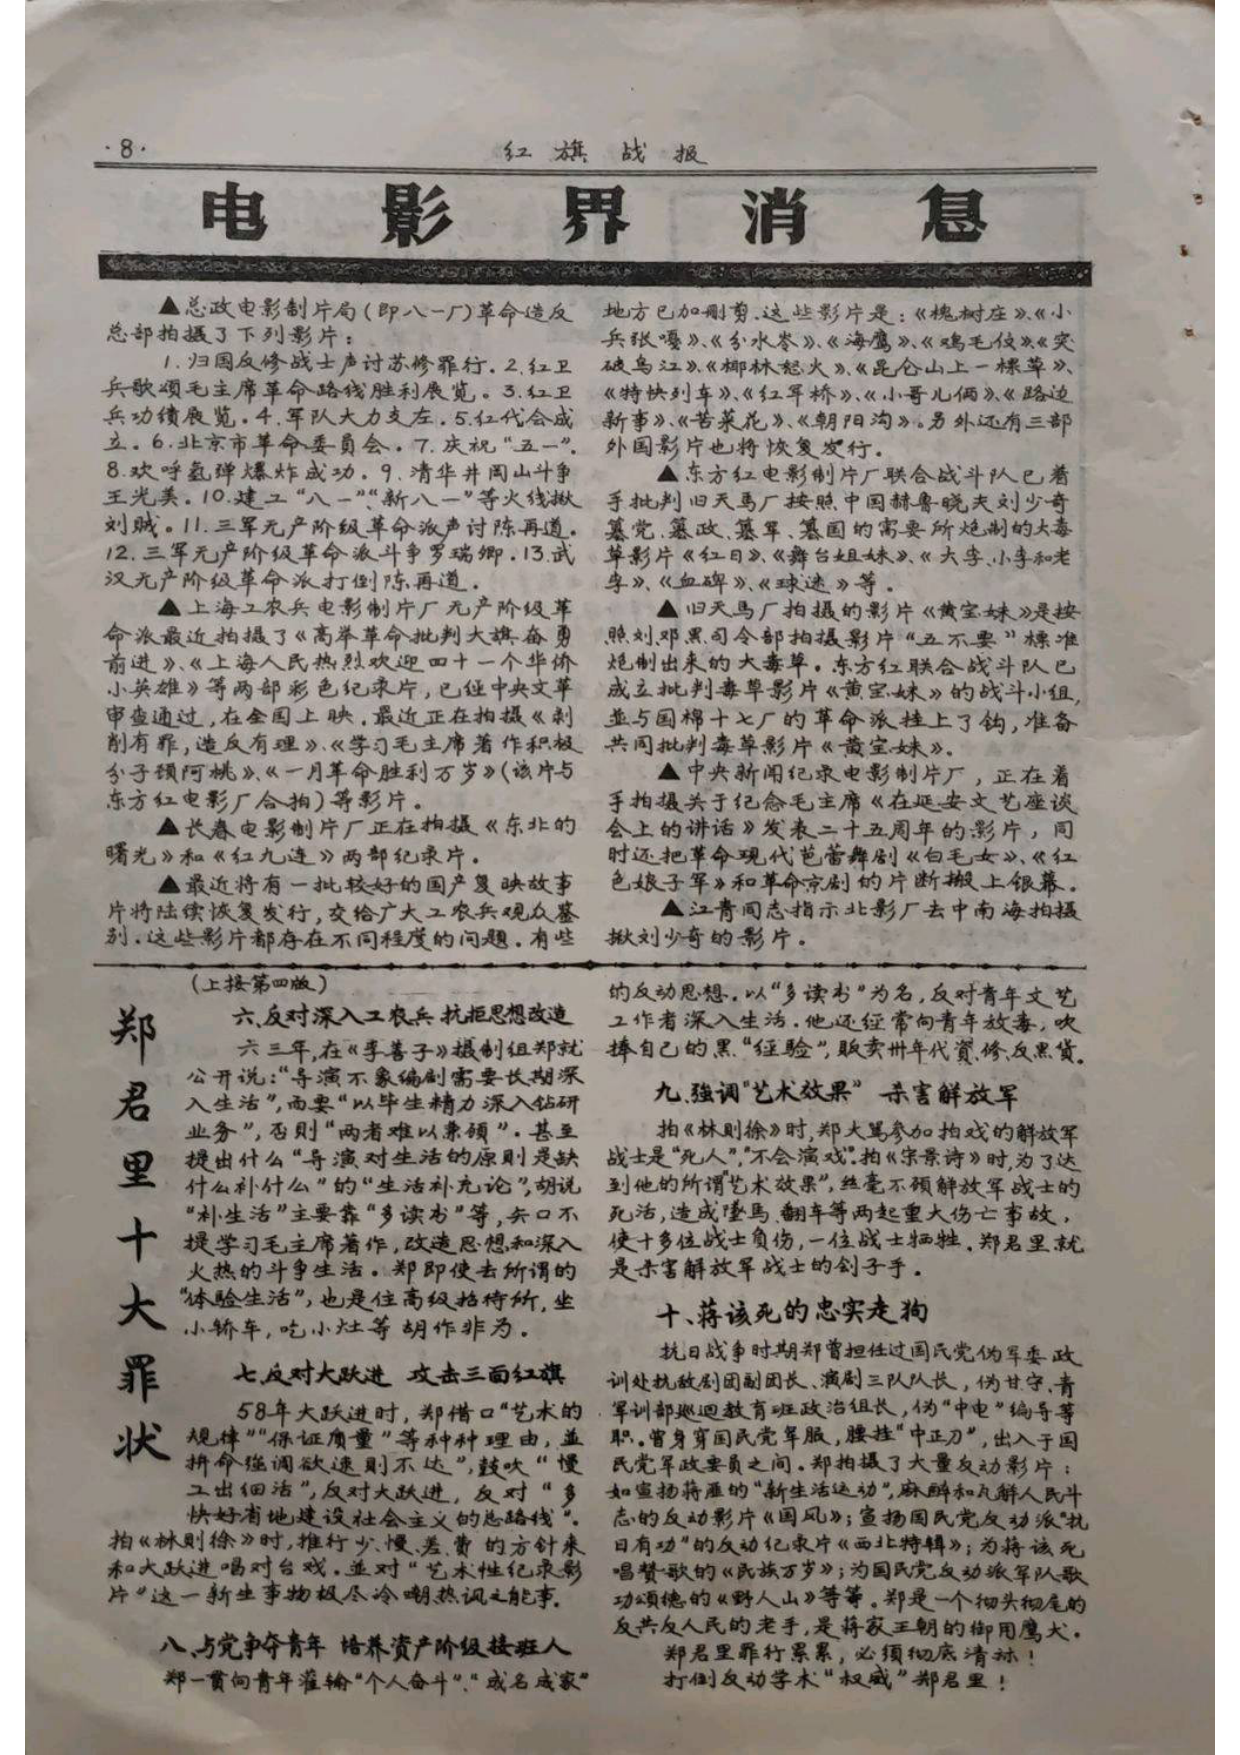 ·8·
红旗战报
电影界消息
▲总政电影制片局(即八一厂)革命造反
总部拍摄了下列影片：
1.归国反修战士声讨苏修罪行.2.红卫
兵歌颂毛主席革命路线胜利展览。3.红卫
兵功绩展览.4.军队大力支左.5.红代会成
立.6.北京市革命委员会.7.庆祝“五一”.
8.欢呼氢弹爆炸成功.9.清华井岡山斗争
王光美.10.建工“八一”“新八一”等火线揪
刘贼。11.三军无产阶级革命派声讨陈再道.
12.三军无产阶级革命派斗争罗瑞卿.13.武
汉无产阶级革命派打倒陈再道.
▲上海工农兵电影制片厂无产阶级革
命派最近拍摄了《高举革命批判大旗奋勇
前进》、《上海人民热烈欢迎四十一个华侨
小英雄》等两部彩色纪录片,已经中央文革
审查通过,在全国上映.最近正在拍摄《剥
削有罪,造反有理》、《学习毛主席著作积极
分子顾阿桃》、《一月革命胜利万岁》(该片与
东方红电影厂合拍)等影片.
▲长春电影制片厂正在拍摄《东北的
曙光》和《红九连》两部纪录片.
▲最近将有一批较好的国产复映故事
片将陆续恢复发行,交给广大工农兵观众鉴
别.这些影片都存在不同程度的问题.有些
地方已加删剪.这些影片是：《槐树庄》、《小
兵张嘎》、《分水岺》、《海鹰》、《鸡毛伩》、《突
破乌江》、《椰林怒火》、《昆仑山上一棵草》、
《特快列车》、《红军桥》、《小哥儿俩》、《路边
新事》、《苦菜花》、《朝阳沟》。另外还有三部
外国影片也将恢复发行.
▲东方红电影制片厂联合战斗队已着
手批判旧天馬厂按照中国赫鲁晓夫刘少奇
篡党、篡政、篡军、篡国的需要所炮制的大毒
草影片《红日》、《舞台姐妹》、《大李、小李和老
李》、《血碑》、《球迷》等.
▲旧天馬厂拍摄的影片《黄宝妹》是按
照刘邓黑司令部拍摄影片“五不要”標准
炮制出来的大毒草.东方红联合战斗队已
成立批判毒草影片《黄宝妹》的战斗小组,
並与国棉十七厂的革命派挂上了钩,准备
共同批判毒草影片《黄宝妹》.
▲中央新闻纪录电影制片厂,正在着
手拍摄关于纪念毛主席《在延安文艺座谈
会上的讲话》发表二十五周年的影片,同
时还把革命现代芭蕾舞剧《白毛女》、《红
色娘子军》和革命京剧的片断搬上银幕.
▲江青同志指示北影厂去中南海拍摄
揪刘少奇的影片.
(上接第四版)
郑君里十大罪状
六、反对深入工农兵 抗拒思想改造
六三年,在《李善子》摄制组郑就
公开说:“导演不象编剧需要长期深
入生活”,而要“以毕生精力深入钻研
业务”,否则“两者难以兼顾”.甚至
提出什么“导演对生活的原则是缺
什么补什么”的“生活补充论”,胡说
“补生活”主要靠“多读书”等,矢口不
提学习毛主席著作,改造思想和深入
火热的斗争生活.郑即使去所谓的
“体验生活”,也是住高级招待所,坐
小轿车,吃小灶等胡作非为.
七、反对大跃进 攻击三面红旗
58年大跃进时,郑借口“艺术的
规律”“保证质量”等种种理由,並
拼命强调欲速则不达”,鼓吹“慢
工出细活”,反对大跃进,反对“多
快好省地建设社会主义的总路线”.
拍《林则徐》时,推行少、慢、差、费的方针来
和大跃进唱对台戏.並对“艺术性纪录影
片”这一新生事物极尽冷嘲热讽之能事.
八、与党争夺青年 培养资产阶级接班人
郑一贯向青年灌输“个人奋斗”、“成名成家”
的反动思想.以“多读书”为名,反对青年文艺
工作者深入生活.他还经常向青年放毒,吹
捧自己的黑“经验”,贩卖卅年代資、修、反黑货.
九、強调“艺术效果” 杀害解放军
拍《林则徐》时,郑大罵参加拍戏的解放军
战士是“死人”,“不会演戏”.拍《宋景诗》时,为了达
到他的所谓“艺术效果”,丝毫不顾解放军战士的
死活,造成墜馬、翻车等两起重大伤亡事故,
使十多位战士负伤,一位战士牺牲.郑君里就
是杀害解放军战士的刽子手.
十、蒋该死的忠实走狗
抗日战争时期郑曾担任过国民党伪军委政
训处抗敌剧团副团长、演剧三队队长,伪甘、宁、青
军训部巡迴教育班政治组长,伪“中电”编导等
职.曾身穿国民党军服,腰挂“中正刀”,出入于国
民党军政要员之间.郑拍摄了大量反动影片:
如宣扬蒋匪的“新生活运动”,麻醉和瓦解人民斗
志的反动影片《国风》;宣扬国民党反动派“抗
日有功”的反动纪录片《西北特辑》;为蒋该死
唱赞歌的《民族万岁》;为国民党反动派军队歌
功颂德的《野人山》等等.郑是一个彻头彻尾的
反共反人民的老手,是蒋家王朝的御用鹰犬.
郑君里罪行累累,必须彻底清祘!
打倒反动学术“权威”郑君里!